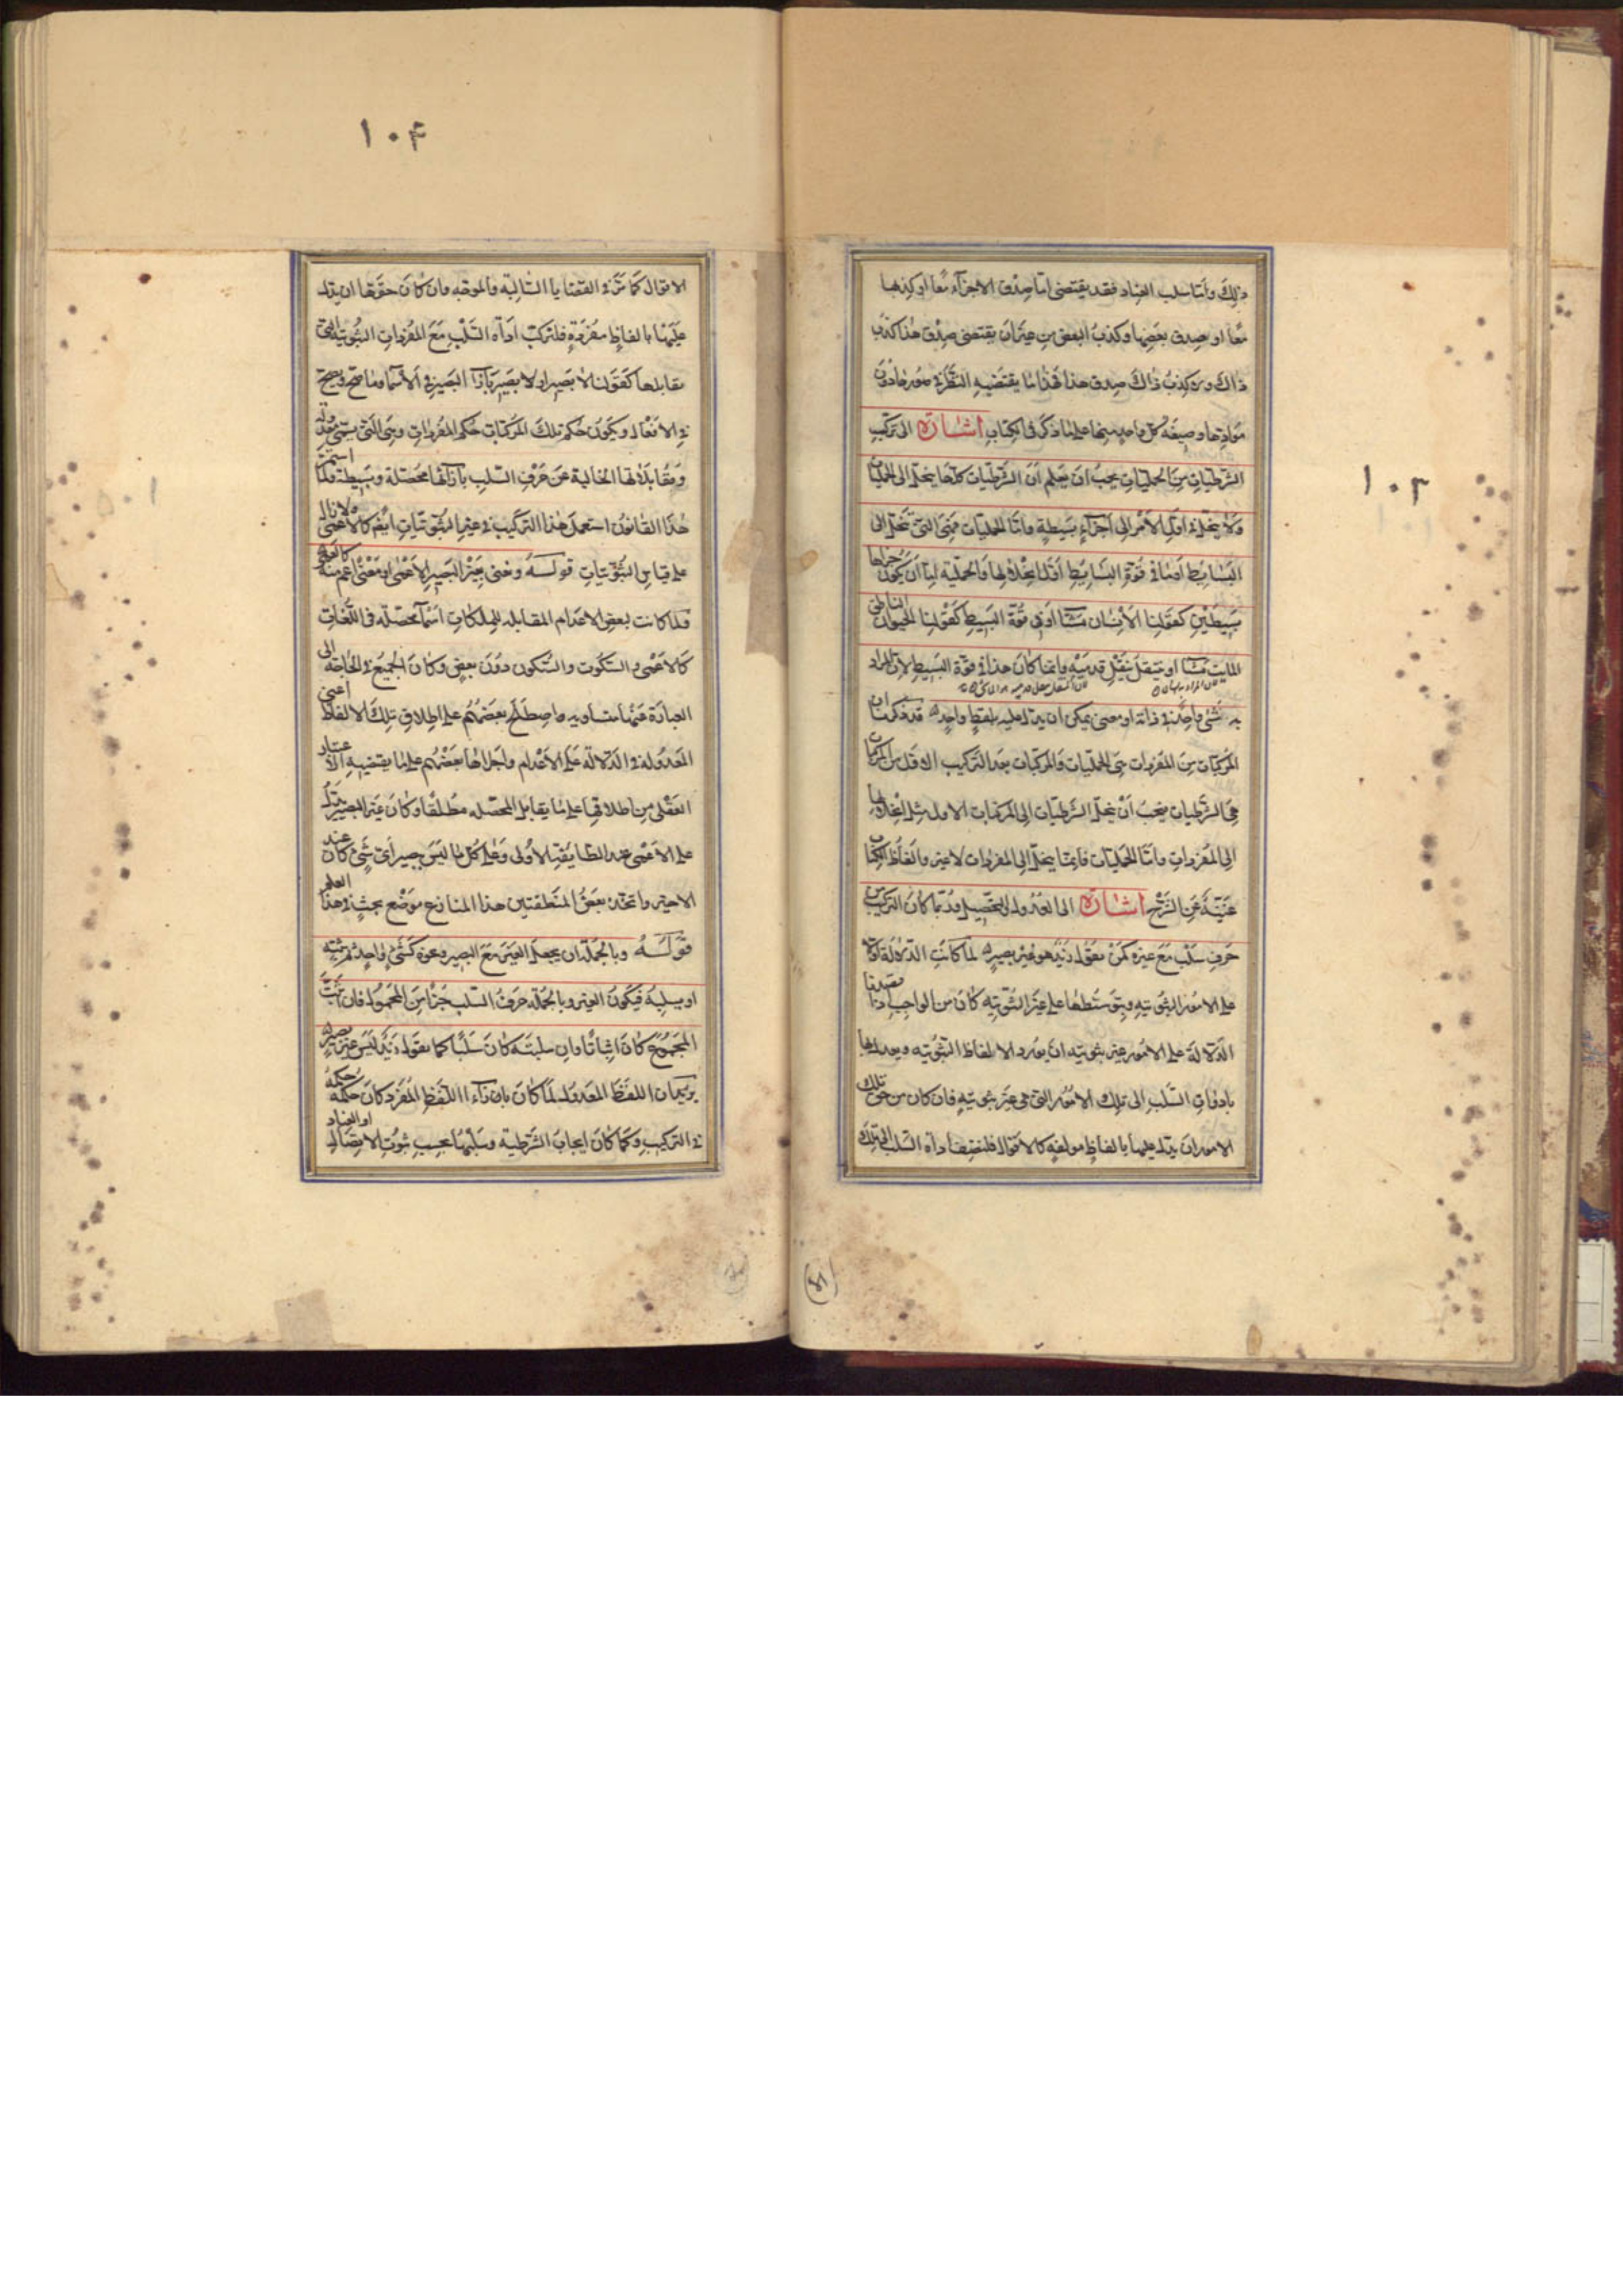 ١٠٣
ذلك وأما سلب العناد فقد يقتضي اما صدق الاجزاء معا او كذبها
معا او صدق بعضها وكذب البعض من غير ان يقتضي صدق هذا كذب
ذاك ولا كذب ذاك صدق هذا فهذا ما يقتضيه النظر في صورها دون
موادها وصيغة كل واحد منها على ما ذكر في الكتاب اشارة الى تركيب
الشرطيات من الحمليات يجب ان يعلم ان الشرطيات كلها ينحل الى الحمليات
ولا ينحل في اول الامر الى اجزاء بسيطة واما الحمليات فهي التي تنحل الى
البسايط او ما في قوة البسايط اول انحلالها والحملية اما ان يكون جزاها
بسيطين كقولنا الانسان مشا او في قوة البسيط كقولنا الحيوان الناطق
المايت مشا او منتقل بنقل قدميه وانما كان هذا في قوة البسيط لان المراد
به شئ واحد في ذاته او معنى يمكن ان يدل عليه بلفظ واحد قد ذكرنا ان
المركبات من المفردات هي الحمليات والمركبات بعد التركيب الاول من المركبات
هي الشرطيات فيجب أن ينحل الشرطيات الى المركبات الاول مثل انحلالها
الى المفردات واما الحمليات فانما ينحل الى المفردات لا غير والفاظ الكتاب
غنية عن الشرح اشارة الى العدول والتحصيل وربما كان التركيب من
حرف سلب مع غيره كمن يقول زيد هو غير بصير لما كانت الدلالة اولا
على الامور الثبوتية وبتوسطها على غير الثبوتية كان من الواجب اذا قصدنا
الدلالة على الامور غير ثبوتية ان يورد الالفاظ الثبوتية ويعدل بها
بادوات السلب الى تلك الامور التي هي غير ثبوتية فان كان من حق تلك
الامور ان يدل عليها بالفاظ مولفه كالاقوال فلنضف اداه السلب الى تلك
١٠٤
الاقوال كما مر في القضايا السالبة والموجبه وان كان حقها ان يدل
عليها بالفاظ مفردة فلتركب اداه السلب مع المفردات الثبوتية التي
مقابلها كقولنا لا بصير او لا يبصر بازاء البصير في الاسما وما صح ويصح
في الافعال ويكون حكم تلك المركبات حكم المفردات وهي التي يسمى معدولة
ومقابلاتها الخالية عن حرف السلب بازائها محصلة وبسيطة ولما استمر
هذا القانون استعمل هذا التركيب في غير الثبوتيات ايضا كالاعمى ولا زال
على قياس الثبوتيات قولـه ونعني بغير البصير الاعمى او معنى اعم منه كما نعلم
فلما كانت بعض الاعدام المقابله للملكات اسما محصله في اللغات
كالاعمى والسكوت والسكون دون بعض وكان الجميع في الحاجة الى
العبارة عنها متساويه واصطلح بعضهم على اطلاق تلك الالفاظ اعني
المعدولة في الدلالة على الاعدام واجراها بعضهم على ما يقتضيه الاعتبار
العقلى من اطلاقها على ما يقابل المحصله مطلقا وكان غير البصير يدل
على الاعمى عند الطايفة الاولى وعلى كل ما ليس ببصير اي شئ كان عند
الاخيره واتخذ بعض المنطقيين هذا المنازع موضع بحث في هذا العلم
قولـه وبالجملة ان يجعل الغير مع البصير ونحوه كشئ واحد ثم يثبته
او يسلبه فيكون الغير وبالجملة حرف السلب جزءا من المحمول فان اثبت
المجموع كان اثباتا وان سلبته كان سلبا كما يقول زيد ليس غير بصير
يريد ان اللفظ المعدول لما كان بازاء اللفظ المفرد كان حكمه حكمه
في التركيب وكما كان ايجاب الشرطيه وسلبها بحسب ثبوت الاتصال او العناد